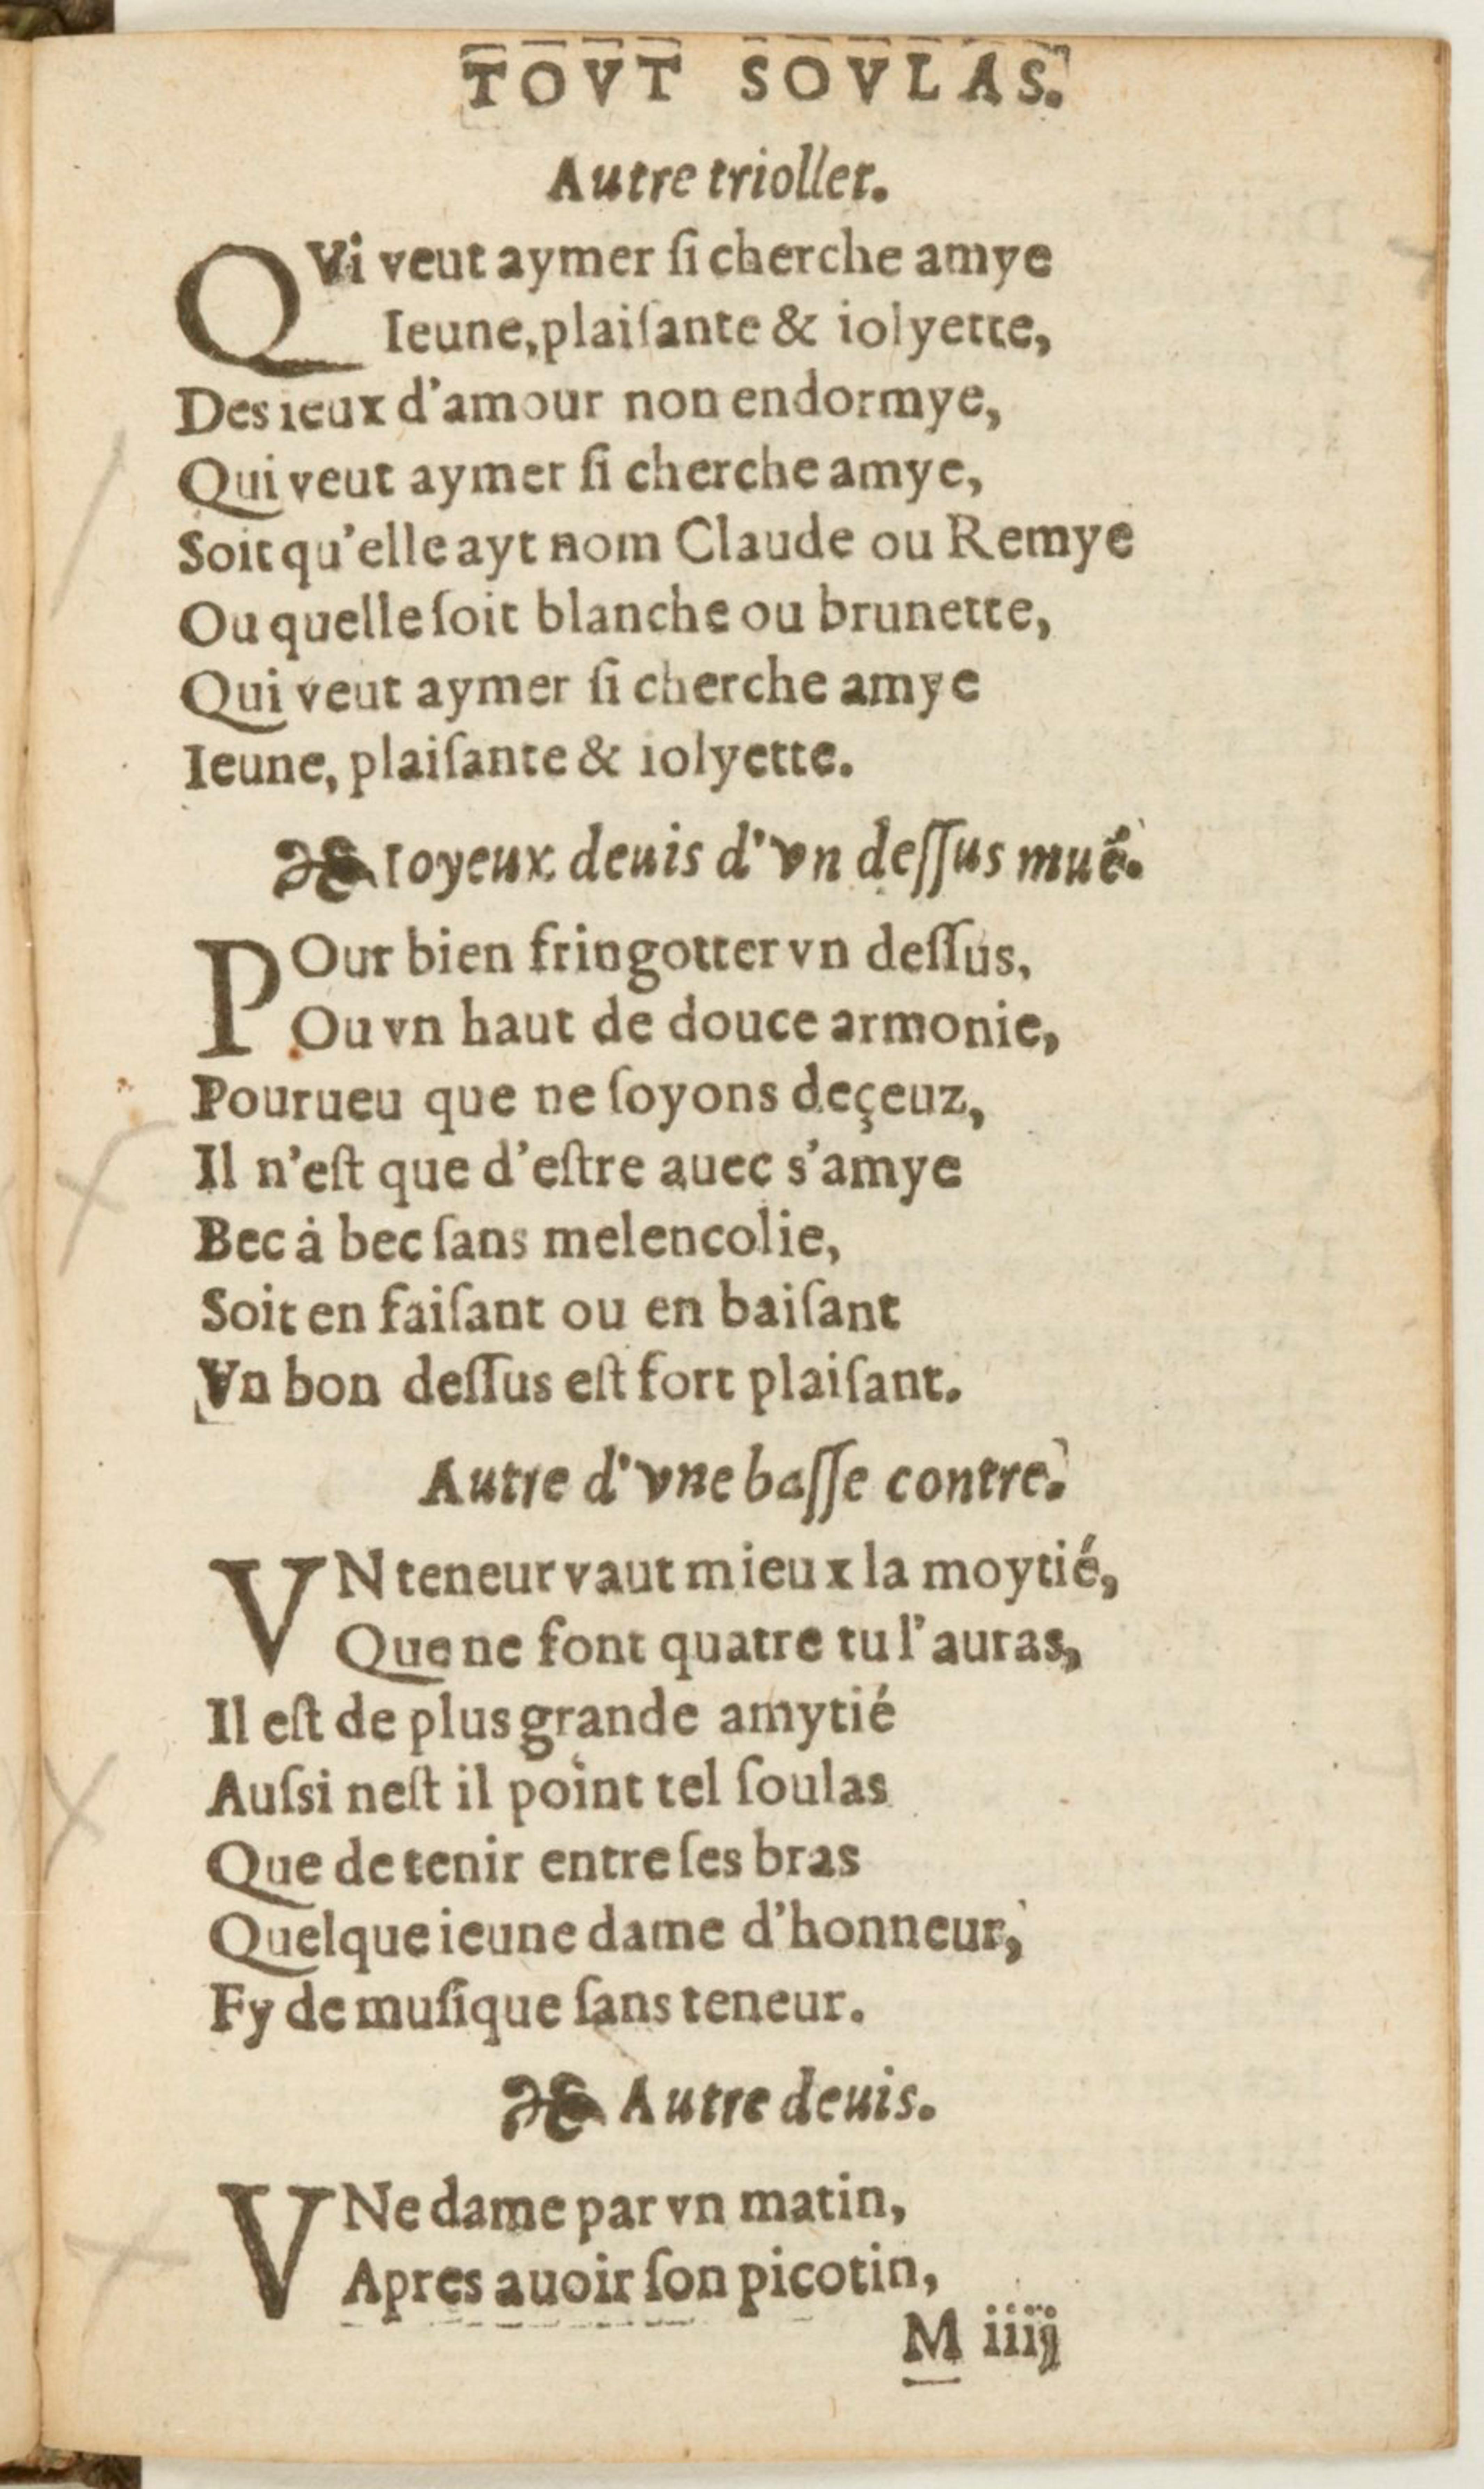 TOVT SOVLAS.
Autre triollet.
QVi veut aymer ſi cherche amye
Ieune, plaiſante & iolyette,
Des ieux d'amour non endormye,
Qui veut aymer ſi cherche amye,
Soit qu'elle ayt nom Claude ou Remye
Ou quelle ſoit blanche ou brunette,
Qui veut aymer ſi cherche amye
Ieune, plaiſante & iolyette.
Ioyeux deuis d'vn deſſus mué.
POur bien fringotter vn deſſus,
Ou vn haut de douce armonie,
Pourueu que ne ſoyons deçeuz,
Il n'eſt que d'eſtre auec s'amye
Bec à bec ſans melencolie,
Soit en faiſant ou en baiſant
Vn bon deſſus eſt fort plaiſant.
Autre d'vne baſſe contre.
VN teneur vaut mieux la moytié,
Que ne font quatre tu l'auras,
Il eſt de plus grande amytié
Auſsi neſt il point tel ſoulas
Que de tenir entre ſes bras
Quelque ieune dame d'honneur,
Fy de muſique ſans teneur.
Autre deuis.
VNe dame par vn matin,
Apres auoir ſon picotin,
M iiij